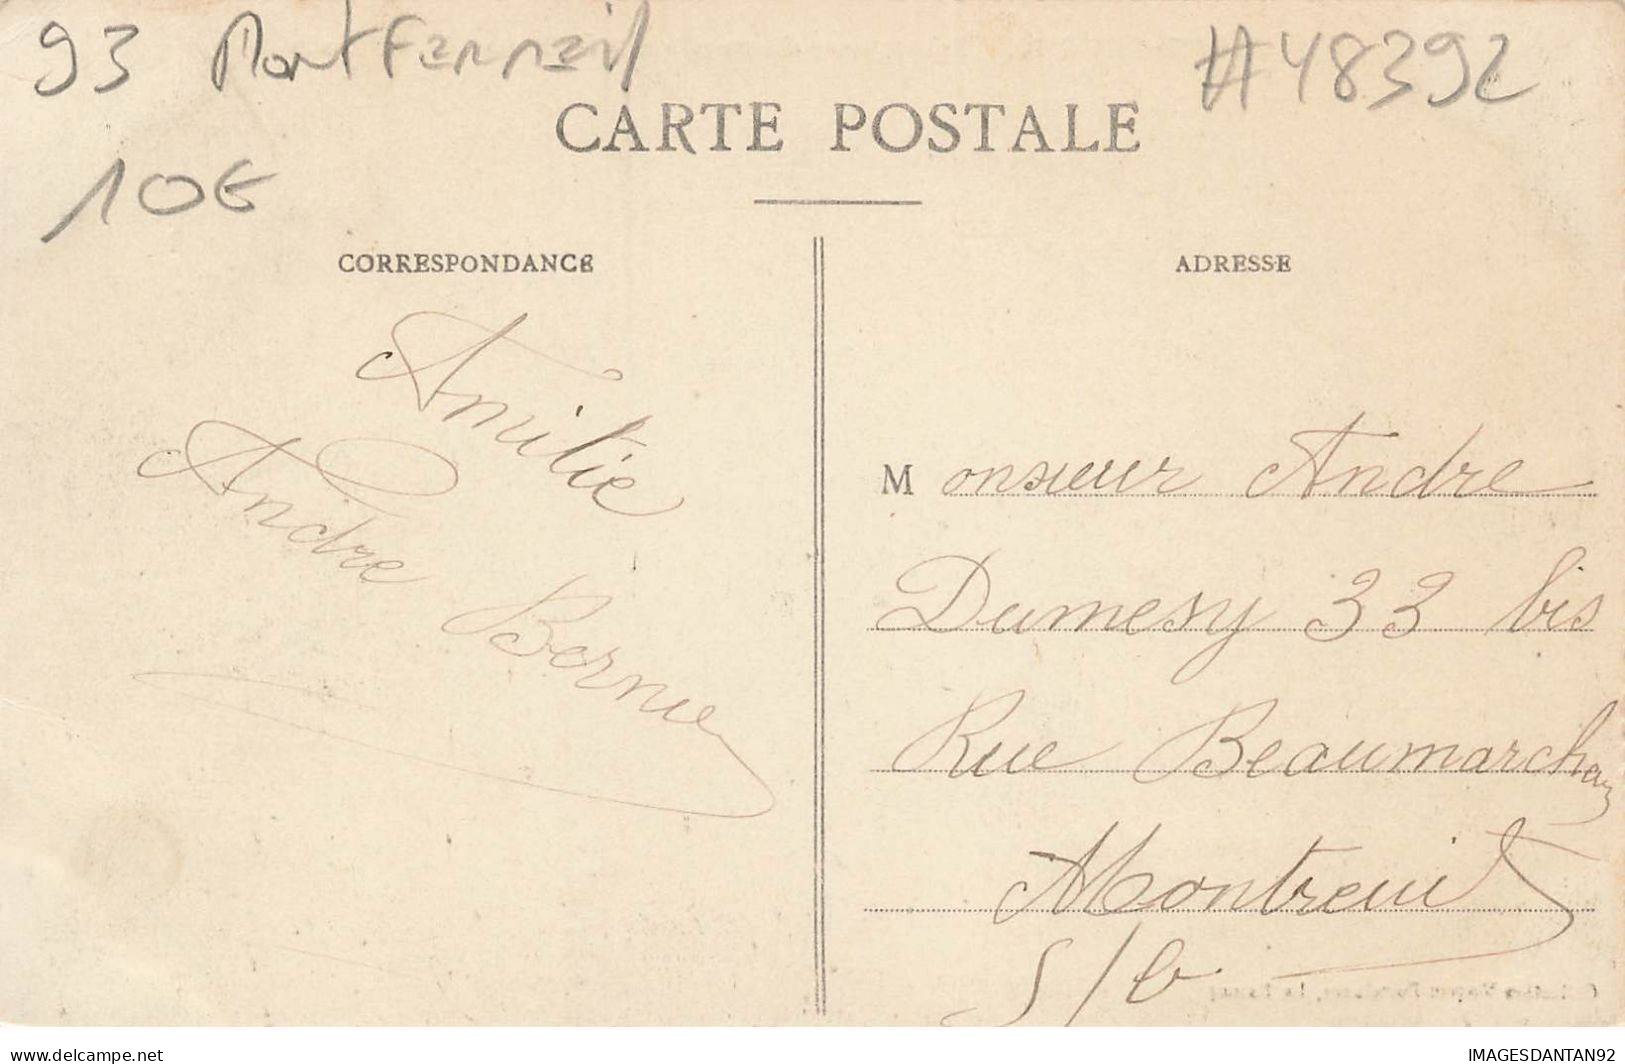 93 Montfermeil
#48392
CARTE POSTALE
10€
CORRESPONDANCE
ADRESSE
Amitie
Andre Bernie
Monsieur Andre
Dumesny 33 bis
Rue Beaumarchay
Montreuil
S/b.
delcampe.com
IMAGESDANTAN92